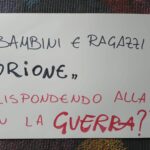 BAMBINI E RAGAZZI
ORIONE„
RISPONDENDO ALLA
LA GUERRA?